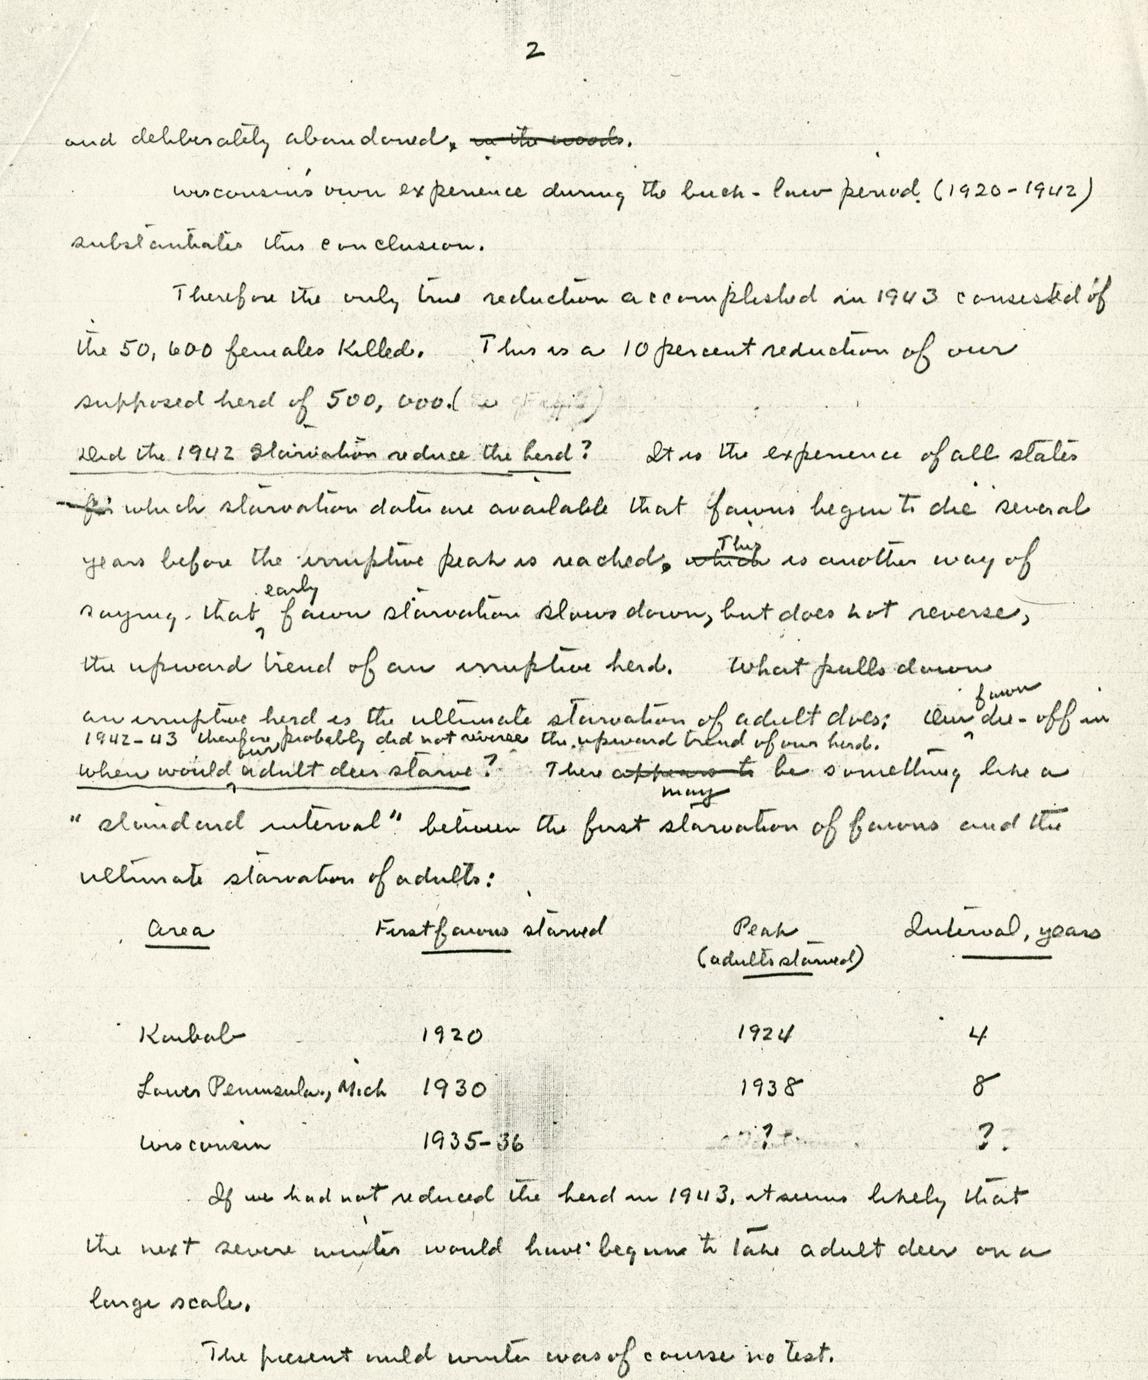 2
and deliberately abandoned. in the woods.
Wisconsin's own experience during the buck-law period (1920-1942)
substantiates this conclusion.
Therefore the only true reduction accomplished in 1943 consisted of
the 50,600 females killed. This is a 10 percent reduction of our
supposed herd of 500,000. (
Did the 1942 starvation reduce the herd? It is the experience of all states
for which starvation data are available that fawns begin to die several
years before the irruptive peak is reached. which This is another way of
saying that early fawn starvation slows down, but does not reverse,
the upward trend of an irruptive herd. What pulls down
an irruptive herd is the ultimate starvation of adult does; Our fawn die-off in
1942-43 therefore probably did not reverse the upward trend of our herd.
When would our adult deer starve? There appears to may be something like a
"standard interval" between the first starvation of fawns and the
ultimate starvation of adults:
Area First fawns starved Peak (adults starved) Interval, years
Kaibab 1920 1924 4
Lower Peninsula, Mich 1930 1938 8
Wisconsin 1935-36 ? ?
If we had not reduced the herd in 1943, it seems likely that
the next severe winter would have begun to take adult deer on a
large scale.
The present mild winter was of course no test.